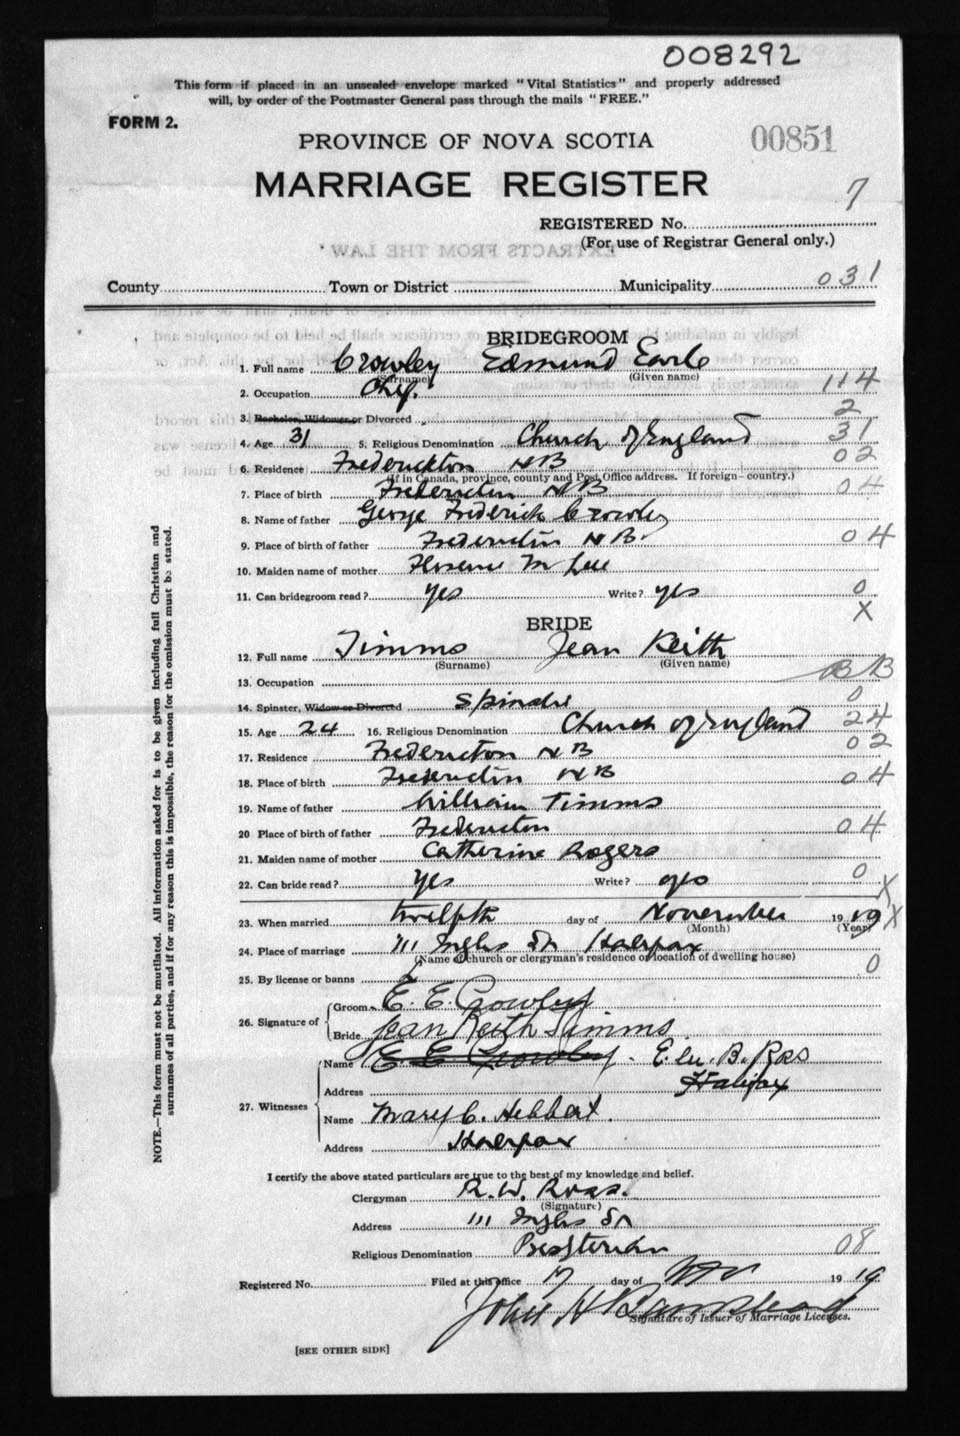 008292
This form if placed in an unsealed envelope marked "Vital Statistics" and properly addressed
will, by order of the Postmaster General pass through the mails "FREE."
FORM 2.
PROVINCE OF NOVA SCOTIA
00851
MARRIAGE REGISTER
7
REGISTERED No.
(For use of Registrar General only.)
EXTRACTS FROM THE LAW
County Town or District Municipality 031
BRIDEGROOM
1. Full name Crowley Edmund Earle
(Surname) (Given name)
2. Occupation Chef. 114
3. Bachelor, Widower or Divorced 2
4. Age 31 5. Religious Denomination Church of England 31
6. Residence Fredericton NB 02
(If in Canada, province, county and Post Office address. If foreign—country.)
7. Place of birth Fredericton NB 04
8. Name of father George Frederick Crowley
9. Place of birth of father Fredericton N B. 04
10. Maiden name of mother Florence M Lee
11. Can bridegroom read? Yes Write? yes 0
X
BRIDE
12. Full name Timms Jean Keith
(Surname) (Given name)
13. Occupation BB
14. Spinster, Widow or Divorced Spinster 0
15. Age 24 16. Religious Denomination Church of England 24
17. Residence Fredericton NB 02
18. Place of birth Fredericton NB 04
19. Name of father William Timms
20 Place of birth of father Fredericton 04
21. Maiden name of mother Catherine Rogers
22. Can bride read? Yes Write? yes 0
X
23. When married twelfth day of November 1919 X
(Month) (Year)
24. Place of marriage 111 Inglis St Halifax
(Name of church or clergyman's residence or location of dwelling house)
25. By license or banns L 0
26. Signature of Groom E. E. Crowley
Bride Jean Keith Timms
27. Witnesses Name E E Crowley B. Ross
Address Halifax
Name Mary C. Hebbert
Address Halifax
I certify the above stated particulars are true to the best of my knowledge and belief.
Clergyman R. W. Ross.
(Signature)
Address 111 Inglis St
Religious Denomination Presbyterian 08
Registered No. Filed at this office 17 day of Nov 1919
John H Barnstead
Signature of Issuer of Marriage Licenses.
[SEE OTHER SIDE]
NOTE.—This form must not be mutilated. All information asked for is to be given including full Christian and
surnames of all parties, and if for any reason this is impossible, the reason for the omission must be stated.